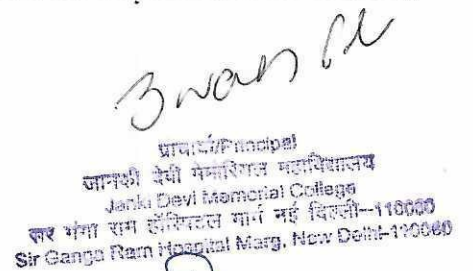 प्राचार्या/Principal
जानकी देवी मेमोरियल महाविद्यालय
Janki Devi Memorial College
सर गंगा राम हॉस्पिटल मार्ग नई दिल्ली-110060
Sir Ganga Ram Hospital Marg, New Delhi-110060